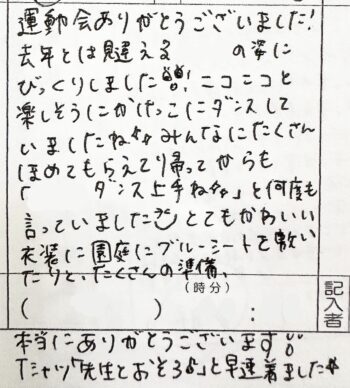 運動会ありがとうございました!
去年とは見違える の姿に
びっくりしました!ニコニコと
楽しそうにかけっこにダンスして
いましたね みんなにたくさん
ほめてもらえて帰ってからも
「 ダンス上手ね」と何度も
言っていました とてもかわいい
衣装に園庭にブルーシートを敷い
たりと、たくさんの準備、
(時分)
( ) :
記入者
本当にありがとうございます
Tシャツ「先生とおそろ」と早速着ました